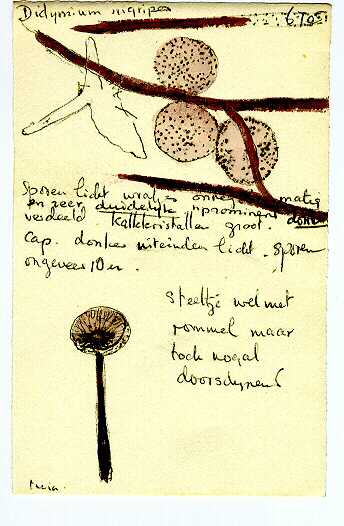 Didymium nigripes
Sporen licht wratjes onregelmatig
en zeer duidelijk prominent donker
verdeeld. Kalkkristallen groot.
Cap. donker uiteinden licht. Sporen
ongeveer 10 u.
Steeltje wel met
rommel maar
toch nogal
doorschijnend